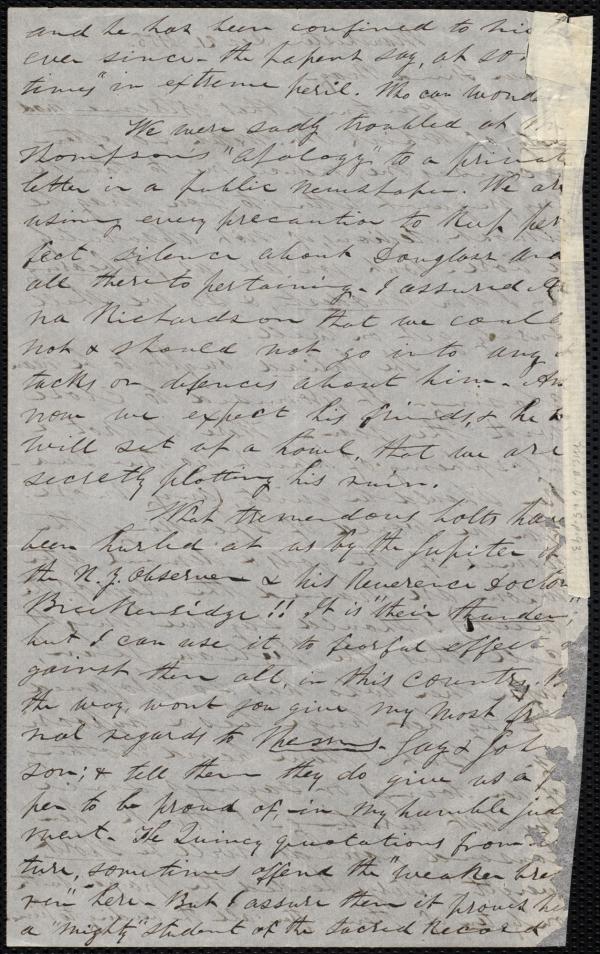 and he has been confined to his
ever since - the papers say, at some
times "in extreme peril. Who can wond
We were sadly troubled at
Thompson's "Apology" to a privat
letter in a public newspaper. We ar
using every precaution to keep per
fect silence about Douglass and
all thereto pertaining - I assured
na Richardson that we could
not & should not go into any
tacks or defences about him - An
now we expect his friends, & he
will set up a howl, that we are
secretly plotting his ruin.
What tremendous bolts have
been hurled at us by the Jupiter of
the N. Y. Observer & his Reverence Doctor
Breckenridge!! It is "their thunder,"
but I can use it to fearful effect a
gainst them all, in this country. B
the way, wont you give my most fr
nal regards to Messrs. Gay & Joh
son; & tell them they do give us a
per to be proud of, - in my humble jud
ment. The Quincy quotations from
ture, sometimes offend the "weaker bre
ren" here - But I assure them it proves him
a "mighty" student of the sacred Record